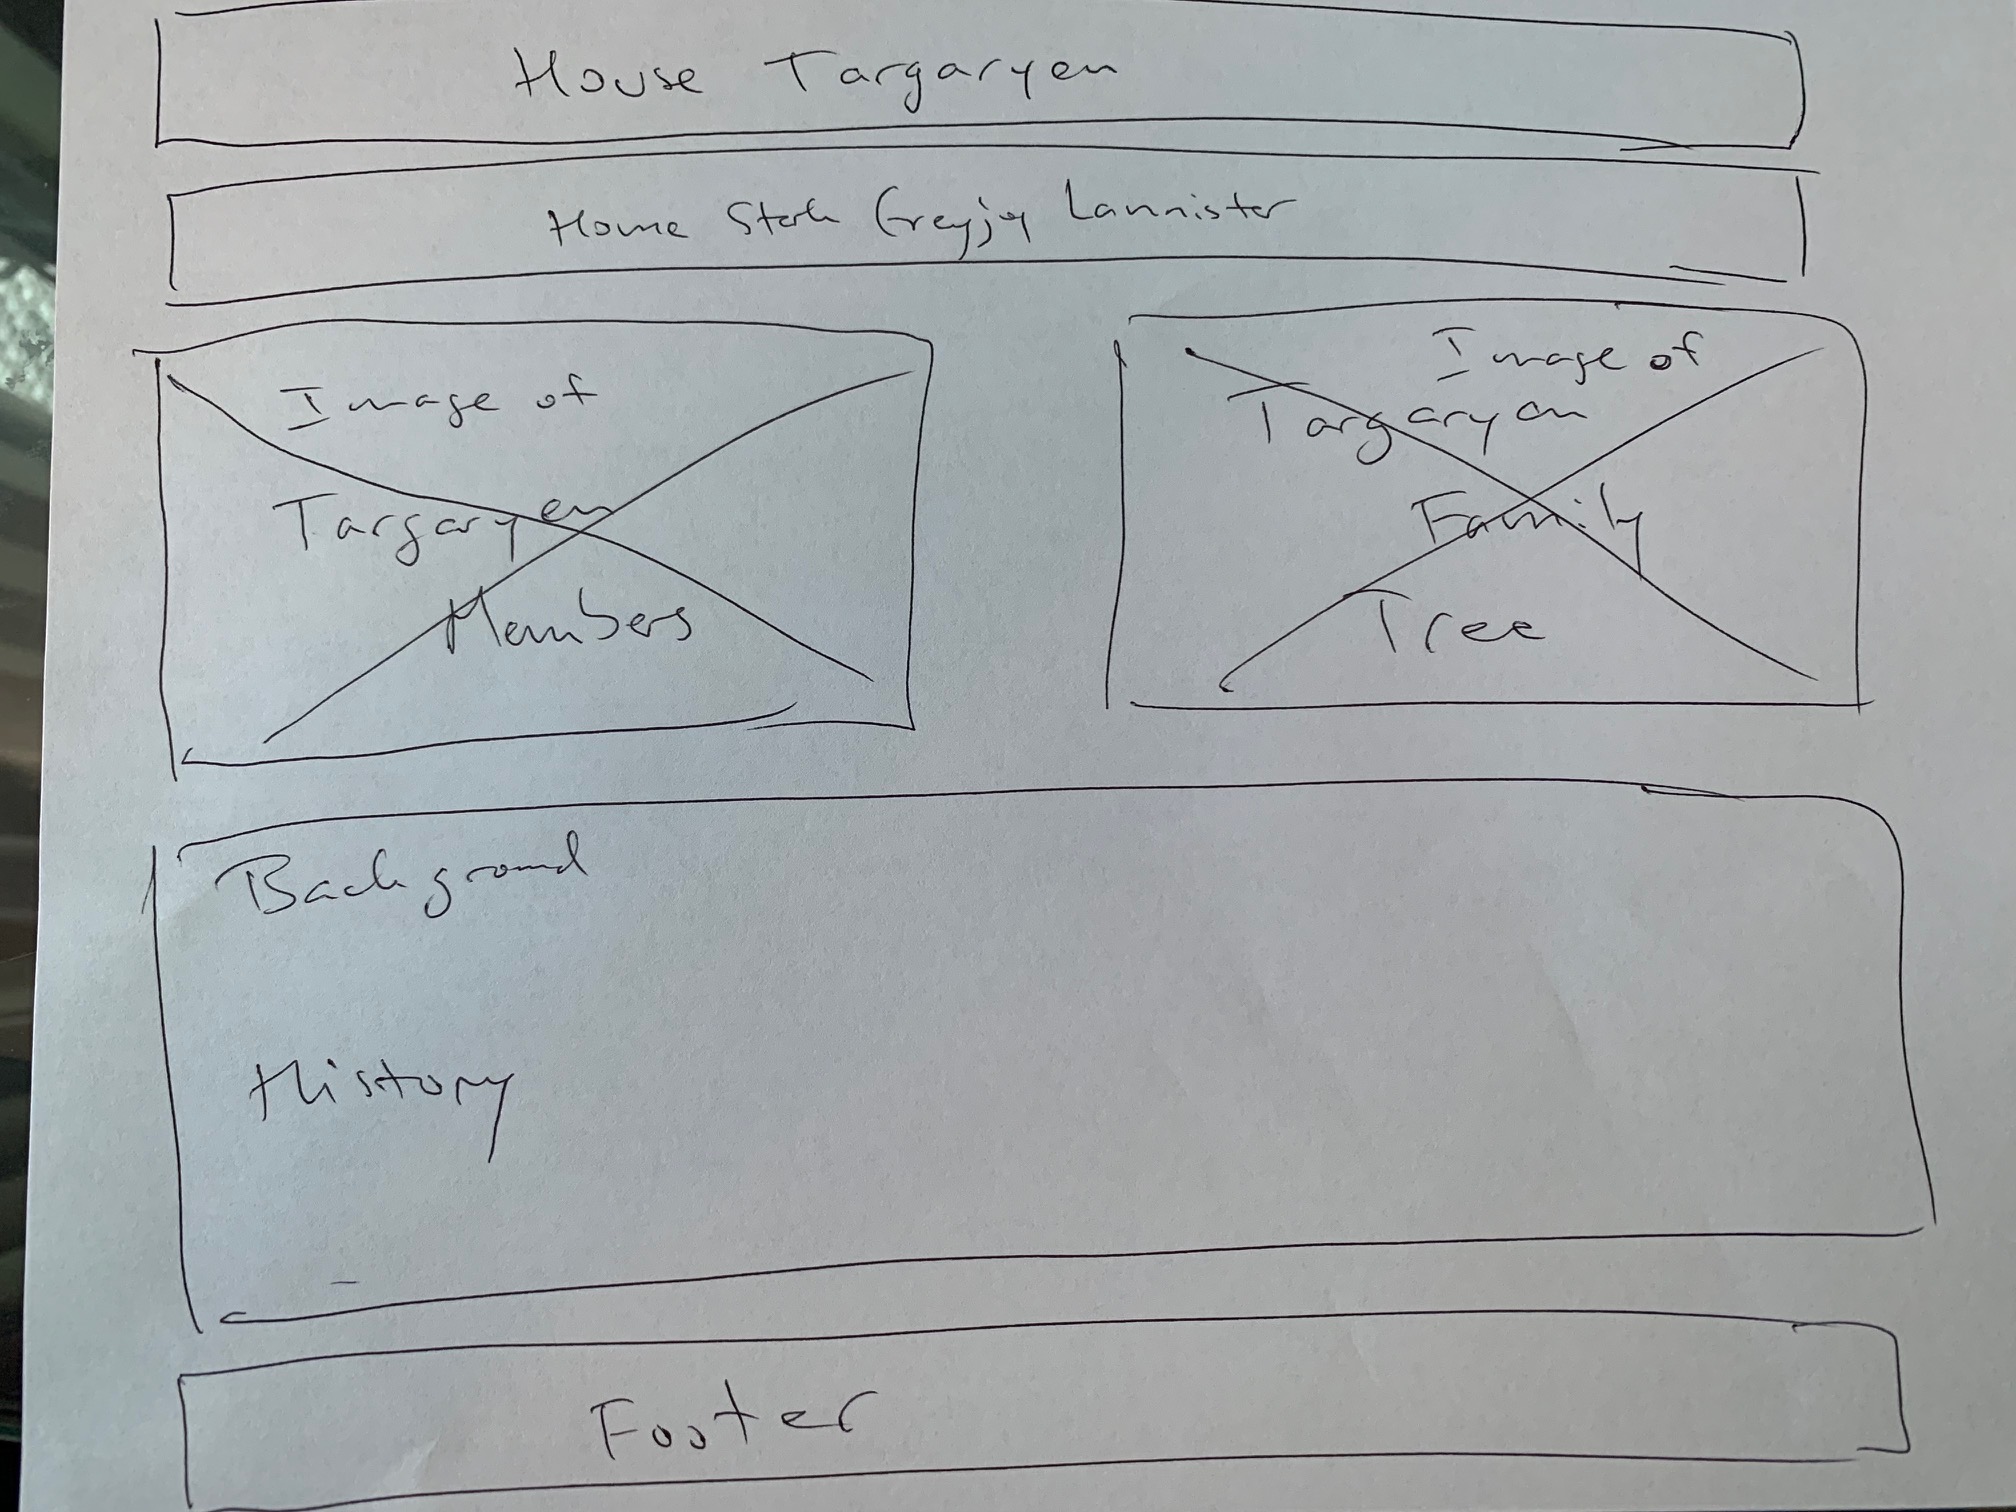 House Targaryen
Home Stark Greyjoy Lannister
Image of
Targaryen
Members
Image of
Targaryen
Family
Tree
Background
History
Footer